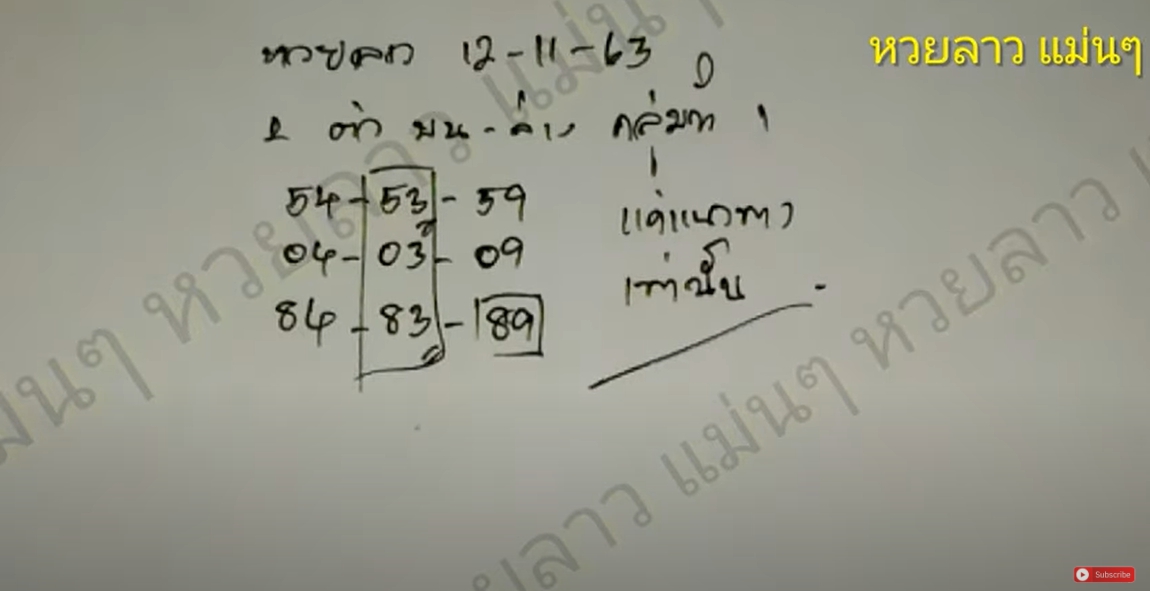 หวยลาว แม่นๆ
หวยลาว 12-11-63
2 ตัว บน-ล่าง กลุ่มที่ 1
54-53-59
04-03-09
84-83-89
แค่แนวทาง
เท่านั้น
หวยลาว แม่นๆ หวยลาว แม่นๆ
หวยลาว แม่นๆ หวยลาว
Subscribe